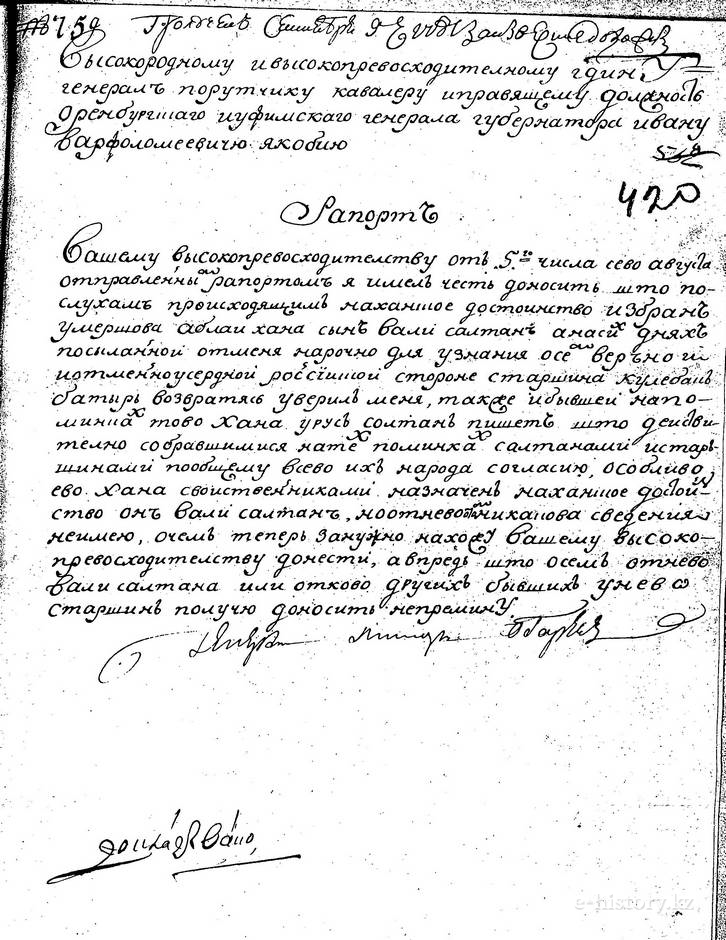 № 759
Высокородному и высокопревосходителному гдину
генералъ порутчику кавалеру иправящему должность
Оренбургшаго иуфимскаго генерала губернатора ивану
варфоломеевичю якобию
420
Рапортъ
Вашему высокопревосходительству отъ 5го числа сево августа
отправленны рапортомъ я имелъ честь доносить што по-
слухамъ происходящимъ наханшое достоинство избранъ
умершова аблаи хана сынъ вали салтанъ анасихъ дняхъ
посыланной отменя нарочно для узнания осемъ верьно и
иотменноусердной россiишой стороне старшина кулебакъ
батырь возвратясь уверилъ меня, также ибывшей напо-
минкахъ тово хана урусъ солтанъ пишетъ што деисви-
телно собравшимися натехъ поминкахъ салтанами истар-
шинами пообщему всево ихъ народа согласию, особливо
ево хана свойственниками назначенъ наханшое достой-
ство онъ вали салтанъ, ноотнево никакова сведения
неимею, очемъ теперь занужно нахожу вашему высоко-
превосходителству донести, авпредь што осемъ отнево
вали салтана или отково другихъ бывшихъ унево
старшинъ получю доносить непремину
e-history.kz